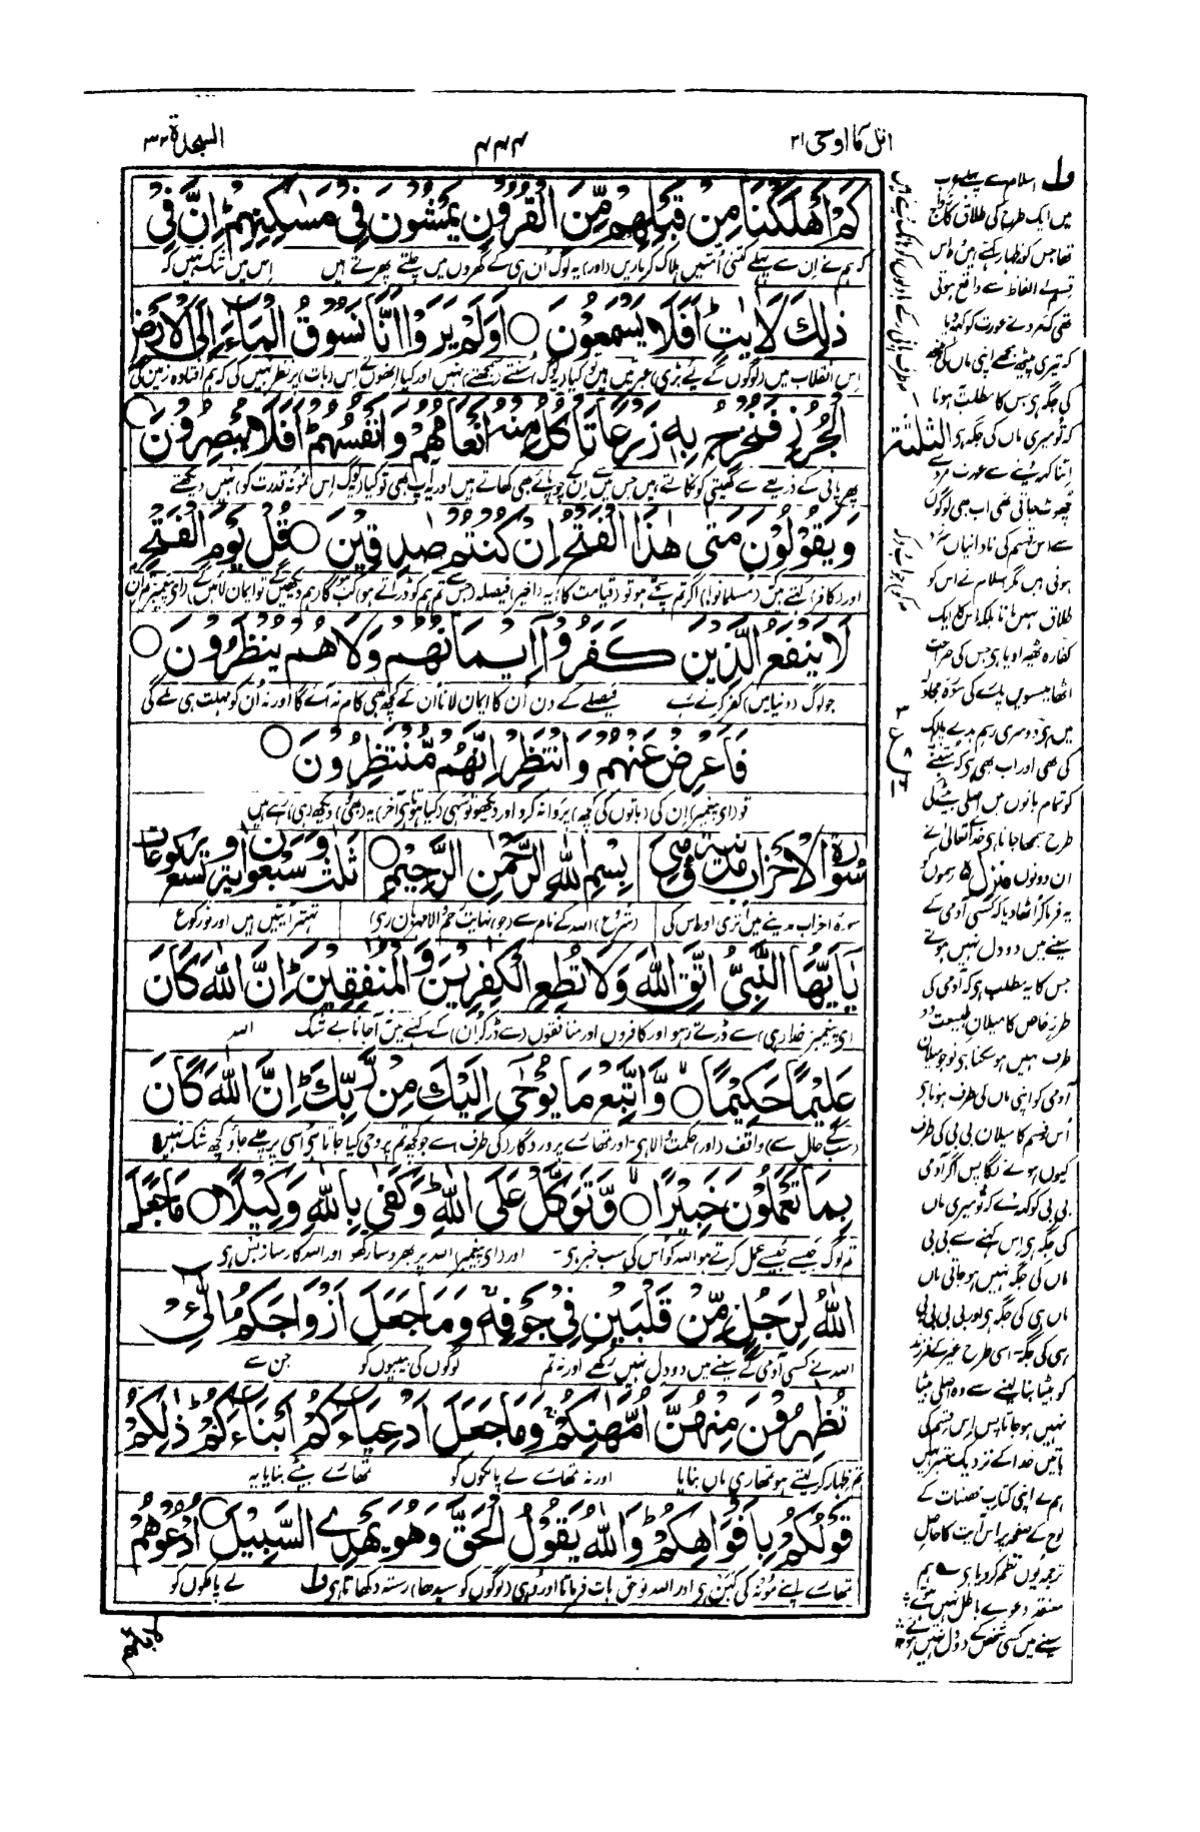 اتل ما اوحی ۲۱
۶۶۶
السجدة ۳۲
كَمْ اَهْلَكْنَا مِنْ قَبْلِهِمْ مِّنَ الْقُرُوْنِ يَمْشُوْنَ فِىْ مَسٰكِنِهِمْ ؕ اِنَّ فِىْ
کہ ہم نے اِن سے پہلے کتنی اُمتیں ہلاک کر ماریں (اور) یہ لوگ اُن ہی کے گھروں میں چلتے پھرتے ہیں اِس میں شک نہیں کہ
ذٰلِكَ لَاٰيٰتٍ ؕ اَفَلَا يَسْمَعُوْنَ ○ اَوَلَمْ يَرَوْا اَنَّا نَسُوْقُ الْمَآءَ اِلَى الْاَرْضِ
اِس انقلاب میں (لوگوں کے لیے بڑی) عبرتیں ہیں کیا (یہ لوگ) سنتے (سمجھتے) نہیں اور کیا انھوں نے اِس (بات) پر نظر نہیں کی کہ ہم افتادہ زمین کی
الْجُرُزِ فَنُخْرِجُ بِهٖ زَرْعًا تَاْكُلُ مِنْهُ اَنْعَامُهُمْ وَاَنْفُسُهُمْ ؕ اَفَلَا يُبْصِرُوْنَ ○
پھر پانی کے ذریعے سے کھیتی کو نکالتے ہیں جس میں سے اِن کے چوپائے بھی کھاتے ہیں اور آپ بھی تو کیا (یہ لوگ اِس نمونۂ قدرت کو) نہیں دیکھتے
وَيَقُوْلُوْنَ مَتٰى هٰذَا الْفَتْحُ اِنْ كُنْتُمْ صٰدِقِيْنَ ○ قُلْ يَوْمَ الْفَتْحِ
اور (کافر) کہتے ہیں (مسلمانو) اگر تم سچے ہو تو (قیامت کا) یہ (اخیر) فیصلہ (جس سے تم ہم کو ڈراتے ہو) کب
لَا يَنْفَعُ الَّذِيْنَ كَفَرُوْا اِيْمَانُهُمْ وَلَا هُمْ يُنْظَرُوْنَ ○
جو لوگ (دنیا میں) کفر کرتے رہے فیصلے کے دن اُن کا ایمان لانا اُن کے کچھ بھی کام نہ آئے گا اور نہ اُن کو مہلت ہی ملے گی
فَاَعْرِضْ عَنْهُمْ وَانْتَظِرْ اِنَّهُمْ مُّنْتَظِرُوْنَ ○
تو (اے پیغمبر) اِن کی (باتوں کی کچھ) پروا نہ کرو اور
سورة الاحزاب مدنية وهي
بِسْمِ اللّٰهِ الرَّحْمٰنِ الرَّحِيْمِ ○
ثلث وسبعون اية وتسع ركوعات
سورۂ احزاب مدینے میں اُتری اور اس کی
(شروع) اللہ کے نام سے (جو) نہایت رحم والا مہربان (ہے)
تہتر آیتیں ہیں اور نو رکوع
يٰاَيُّهَا النَّبِىُّ اتَّقِ اللّٰهَ وَلَا تُطِعِ الْكٰفِرِيْنَ وَالْمُنٰفِقِيْنَ ؕ اِنَّ اللّٰهَ كَانَ
اے پیغمبر خدا (ہی) سے ڈرتے رہو اور کافروں اور منافقوں (سے ڈر کر اُن) کے کہے میں نہ آجانا بے شک اللہ
عَلِيْمًا حَكِيْمًا ○ وَّاتَّبِعْ مَا يُوْحٰى اِلَيْكَ مِنْ رَّبِّكَ ؕ اِنَّ اللّٰهَ كَانَ
(سب کے حال سے) واقف (اور) حکمت والا ہے اور تمہارے پروردگار کی طرف سے جو کچھ تم پر وحی کیا جاتا ہے اُسی پر چلے جاؤ کچھ شک نہیں
بِمَا تَعْمَلُوْنَ خَبِيْرًا ○ وَّتَوَكَّلْ عَلَى اللّٰهِ ؕ وَكَفٰى بِاللّٰهِ وَكِيْلًا ○ مَا جَعَلَ
تم لوگ جیسے جیسے عمل کرتے ہو اللہ کو اُس کی سب خبر ہے اور (اے پیغمبر) اللہ پر بھروسا رکھو اور اللہ کارساز بس ہے
اللّٰهُ لِرَجُلٍ مِّنْ قَلْبَيْنِ فِىْ جَوْفِهٖ وَمَا جَعَلَ اَزْوَاجَكُمُ الّٰٓـِٔىْ
اللہ نے کسی آدمی کے سینے میں دو دل نہیں رکھے اور نہ تم لوگوں کی بیبیوں کو جن سے
تُظٰهِرُوْنَ مِنْهُنَّ اُمَّهٰتِكُمْ وَمَا جَعَلَ اَدْعِيَآءَكُمْ اَبْنَآءَكُمْ ؕ ذٰلِكُمْ
تم ظہار کر لیتے ہو تمہاری ماں بنایا اور نہ تمہارے لے پالکوں کو تمہارے بیٹے بنایا یہ
قَوْلُكُمْ بِاَفْوَاهِكُمْ ؕ وَاللّٰهُ يَقُوْلُ الْحَقَّ وَهُوَ يَهْدِى السَّبِيْلَ ○ اُدْعُوْهُمْ
تمہارے اپنے مونہہ کی کہن ہے اور اللہ تو حق بات فرماتا اور وہی (لوگوں کو سیدھا) رستہ دکھاتا ہے ف۱ لے پالکوں کو
ف۱ اسلام سے پہلے عرب
میں ایک طرح کی طلاق کا رواج
تھا جس کو ظہار کہتے ہیں اس
قسم کے الفاظ سے واقع ہوتی
تھی کہ مرد نے عورت کو کہہ دیا
کہ تیری پیٹھ مجھے اپنی ماں کی پیٹھ
کی جگہ ہے جس کا مطلب ہوتا
کہ تو میری ماں کی جگہ ہے
اتنا کہہ دینے سے عورت مرد سے
چھوٹ جاتی تھی اب بھی لوگوں
سے اس قسم کی نادانیاں سرزد
ہوتی ہیں مگر اسلام نے اس کو
طلاق نہیں مانا بلکہ اس کا ایک
کفارہ ٹھیرا دیا ہے جس کی صراحت
اٹھائیسویں پارے کی سورہ مجادلہ
میں ہے دوسری رسم
کی تھی اور اب بھی ہے کہ متبنّٰی
کو تمام باتوں میں اصلی بیٹے کی
طرح سمجھا جاتا ہے خدا تعالیٰ نے
ان دونوں رسموں کو
یہ فرما کر اٹھا دیا کہ کسی آدمی کے
سینے میں دو دل نہیں ہوتے
جس کا یہ مطلب ہے کہ آدمی کی
طرز خاص کا میلان طبیعت دو
طرف نہیں ہو سکتا ہے تو جو میلان
آدمی کو اپنی ماں کی طرف ہوتا ہے
اُس قسم کا میلان بی بی کی طرف
کیوں ہونے لگا پس اگر آدمی
بی بی کو کہدے کہ تو میری ماں
کی جگہ ہے اس کہنے سے بی بی
ماں کی جگہ نہیں ہو جاتی ماں
ماں ہی کی جگہ ہے اور بی بی بی بی
ہی کی جگہ اسی طرح غیر کے فرزند
کو بیٹا بنا لینے سے وہ اصلی بیٹا
نہیں ہو جاتا پس اِس قسم کی
باتیں خدا کے نزدیک معتبر نہیں
ہم نے اپنی کتاب
لوح کے صفحہ پر اس آیت کا حاصل
ترجمہ یوں نظم کر دیا ہے ہم
معتقد دعوے باطل نہیں ہوتے
سینے میں کسی شخص کے دو دل نہیں ہوتے
الثلثة
منزل ۵